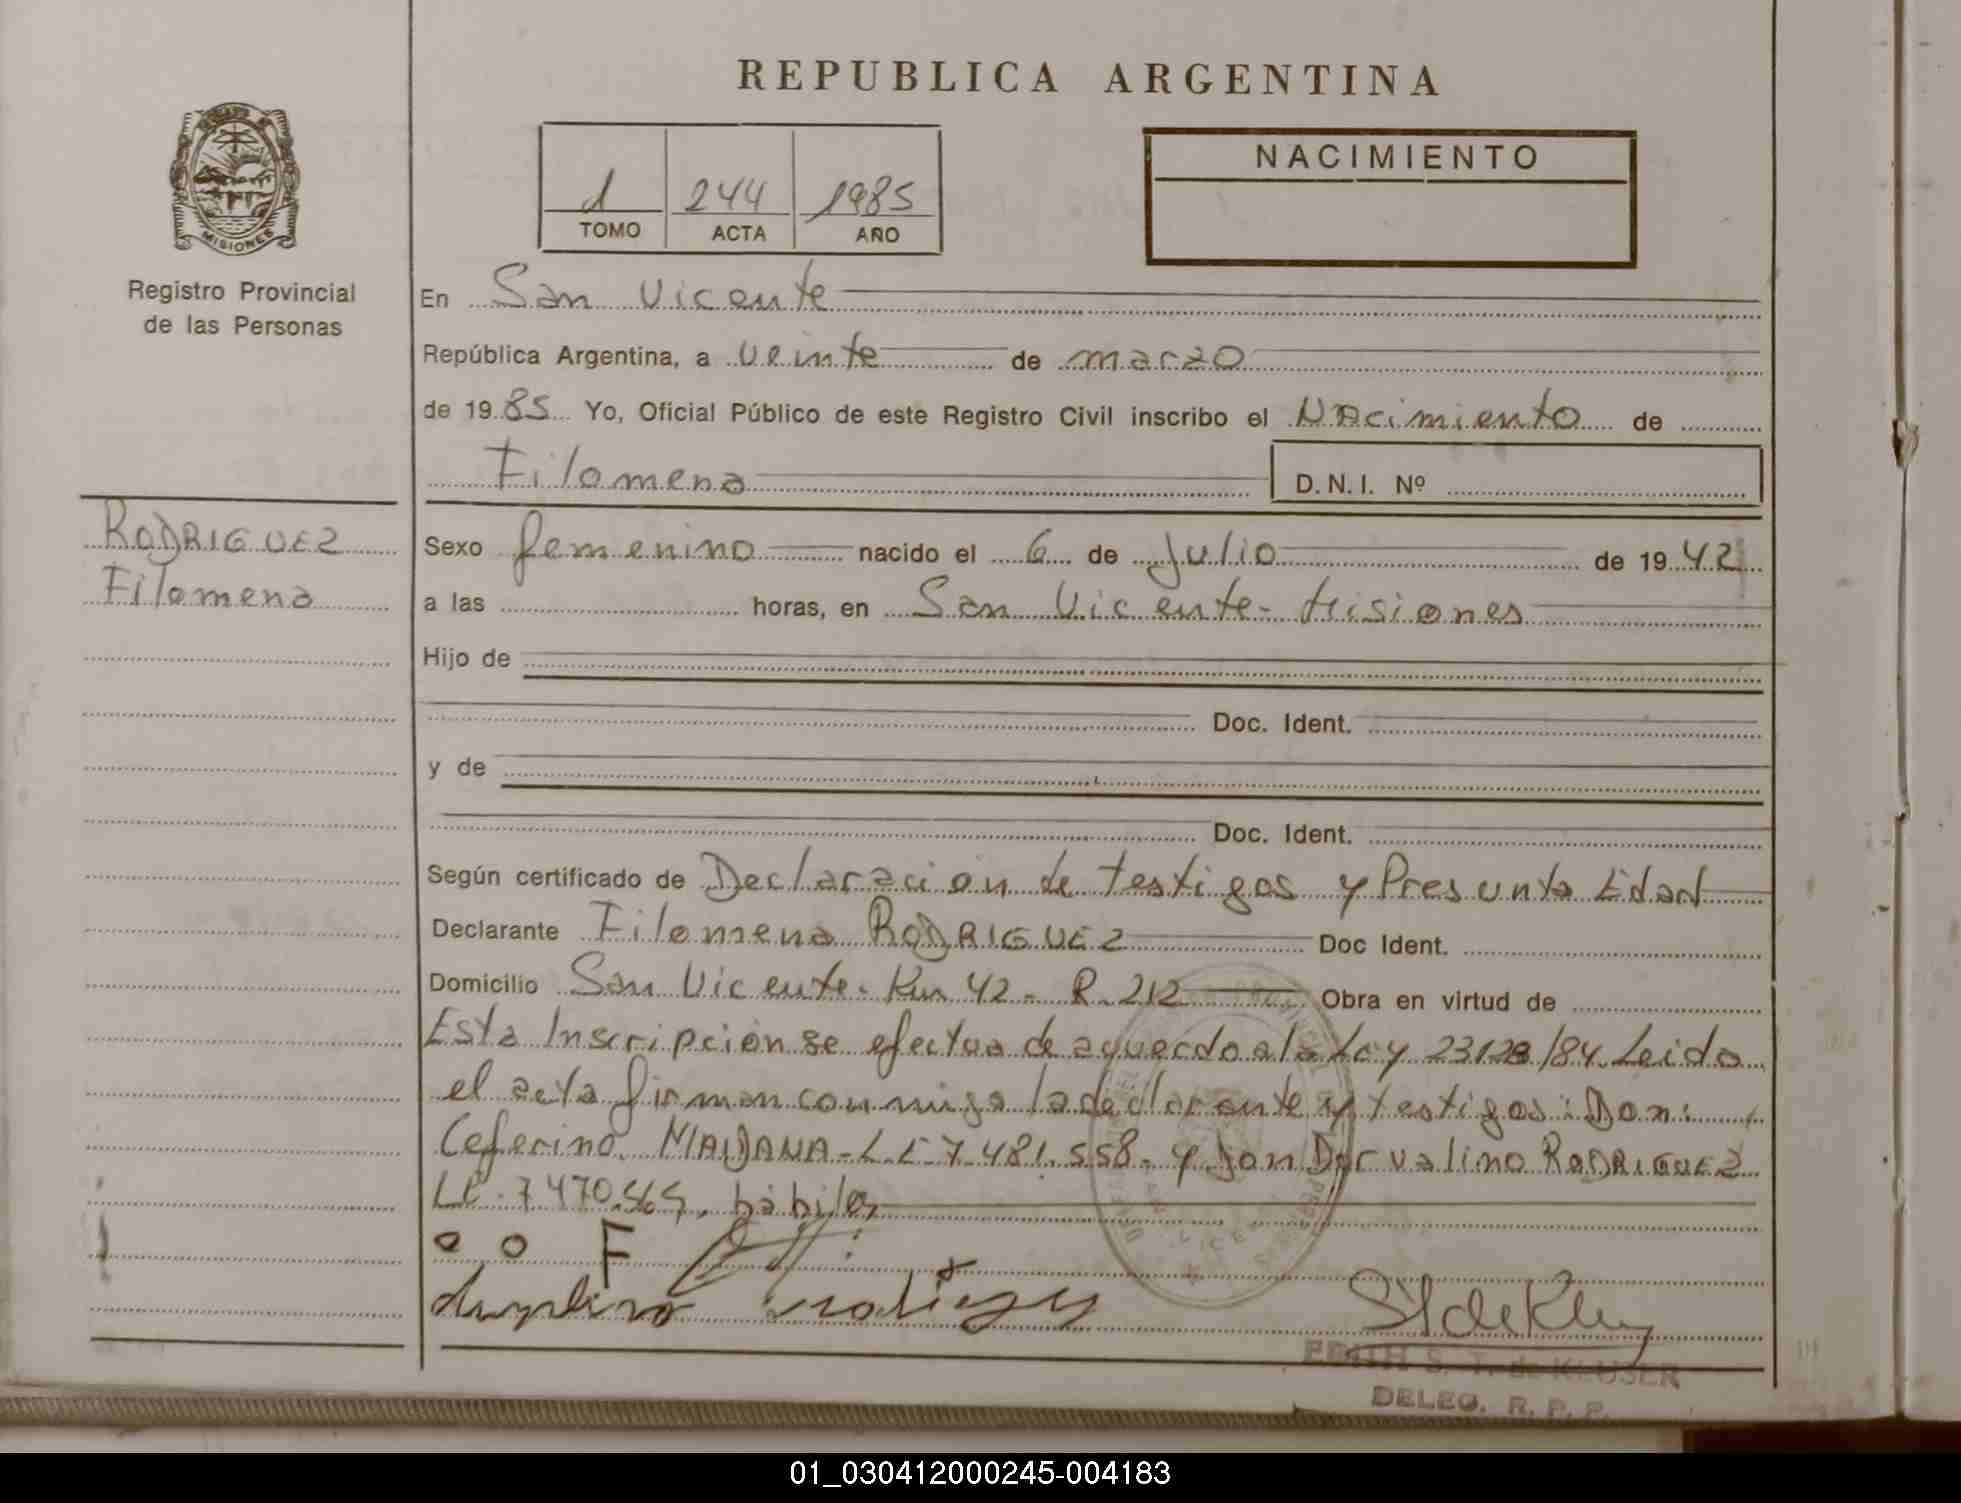 REPUBLICA ARGENTINA
1 244 1985
TOMO ACTA AÑO
NACIMIENTO
MISIONES
Registro Provincial
de las Personas
En San Vicente
República Argentina, a veinte de marzo
de 1985 Yo, Oficial Público de este Registro Civil inscribo el Nacimiento de
Filomena D.N.I. Nº
RODRIGUEZ
Filomena
Sexo femenino nacido el 6 de Julio de 1942
a las horas, en San Vicente - Misiones
Hijo de
Doc. Ident.
y de
Doc. Ident.
Según certificado de Declaración de testigos y Presunta Edad
Declarante Filomena RODRIGUEZ Doc Ident.
Domicilio San Vicente - Km 42 - R. 212 Obra en virtud de
Esta Inscripción se efectua de aquerdo a la Ley 23128/84. Leido
el acta firman conmigo la declarante y testigos: Don:
Ceferino MAIDANA - L E 7.481.558 - y Don Dorvalino RODRIGUEZ
LE. 7470.565, hábiles
F
EDITH S. T. de KLUSER
DELEG. R. P. P.
01_030412000245-004183